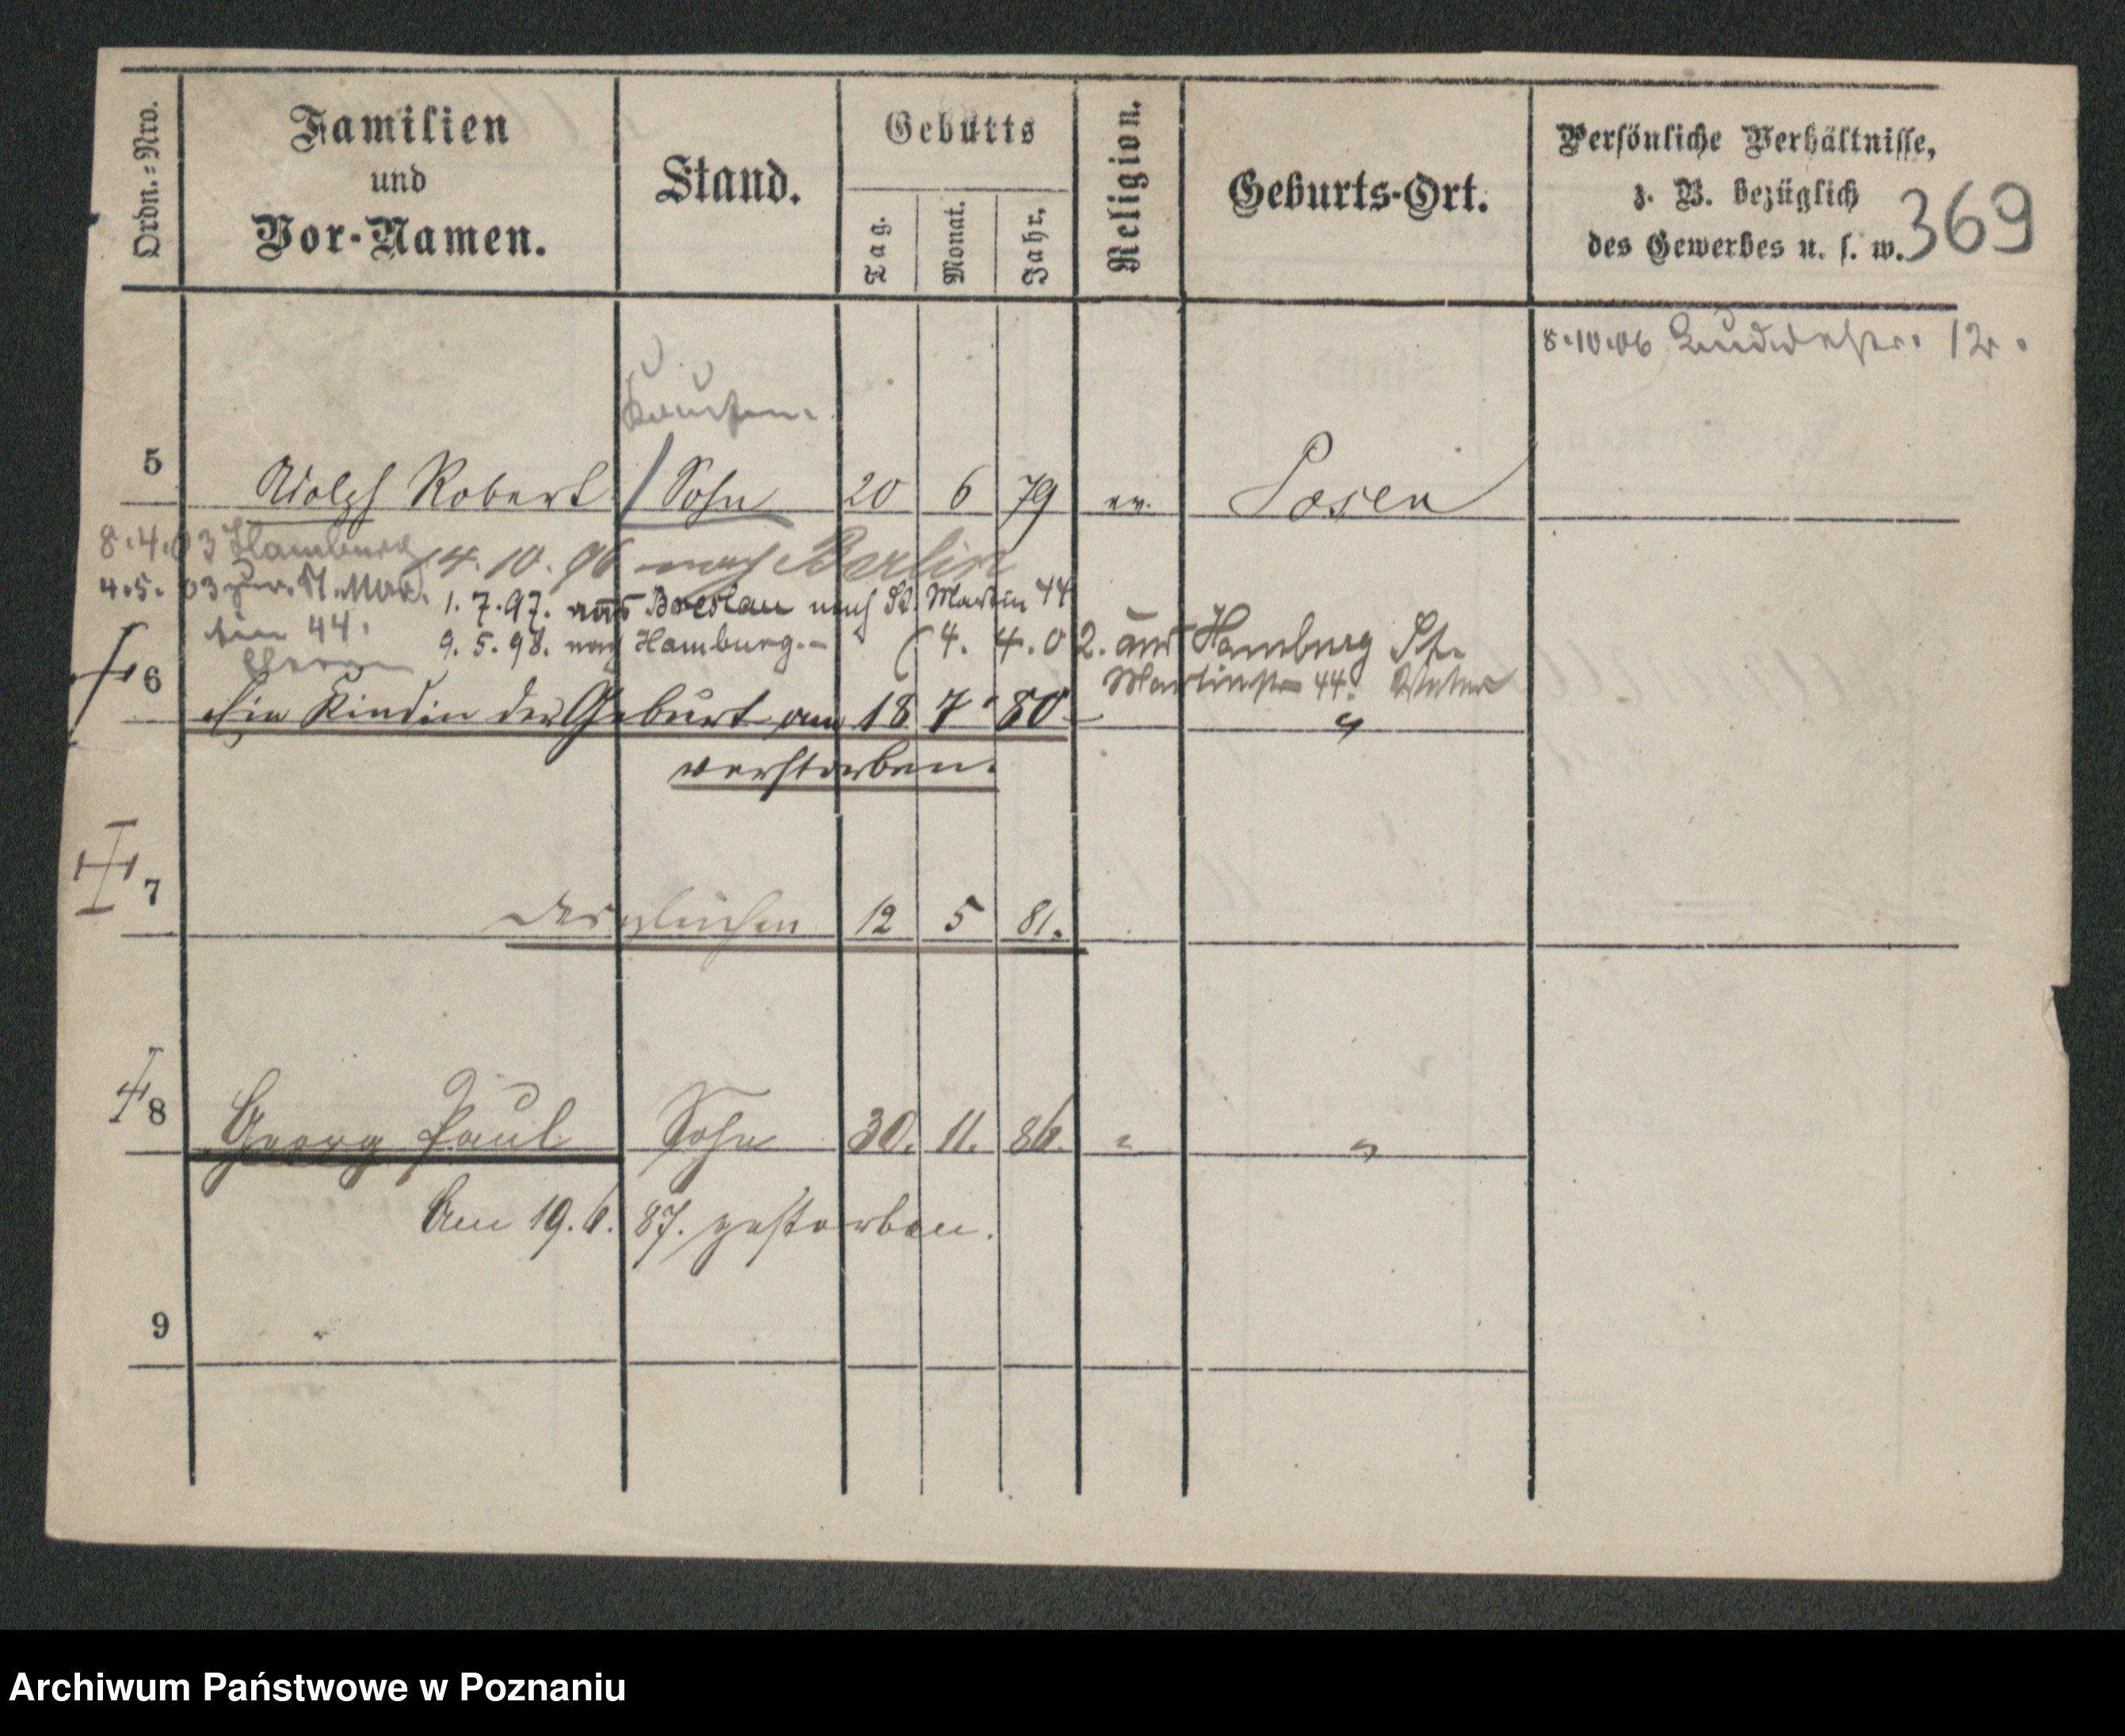 Ordn.=Nro.
Familien
und
Vor-Namen.
Stand.
Geburts
Tag.
Monat.
Jahr.
Religion.
Geburts-Ort.
Persönliche Verhältnisse,
z. B. bezüglich
des Gewerbes u. s. w.
369
8.10.06 12.
Kaufm.
5 Adolph Robert Sohn 20 6 79 ev. Posen
8.4.03 Hamburg
14.10.96 nach Berlin
4.5.03 zur. St. Mar-
tin 44.
1.7.97. aus Breslau nach St. Martin 44
9.5.98. nach Hamburg.-
4.4.02. aus Hamburg St.
Martinstr 44.
6 Ein Kind in der Geburt am 18 7 80 "
verstorben.
7 desgleichen 12 5 81.
8 Georg Paul Sohn 30. 11. 86. " "
Am 19.6.87. gestorben.
9
Archiwum Państwowe w Poznaniu